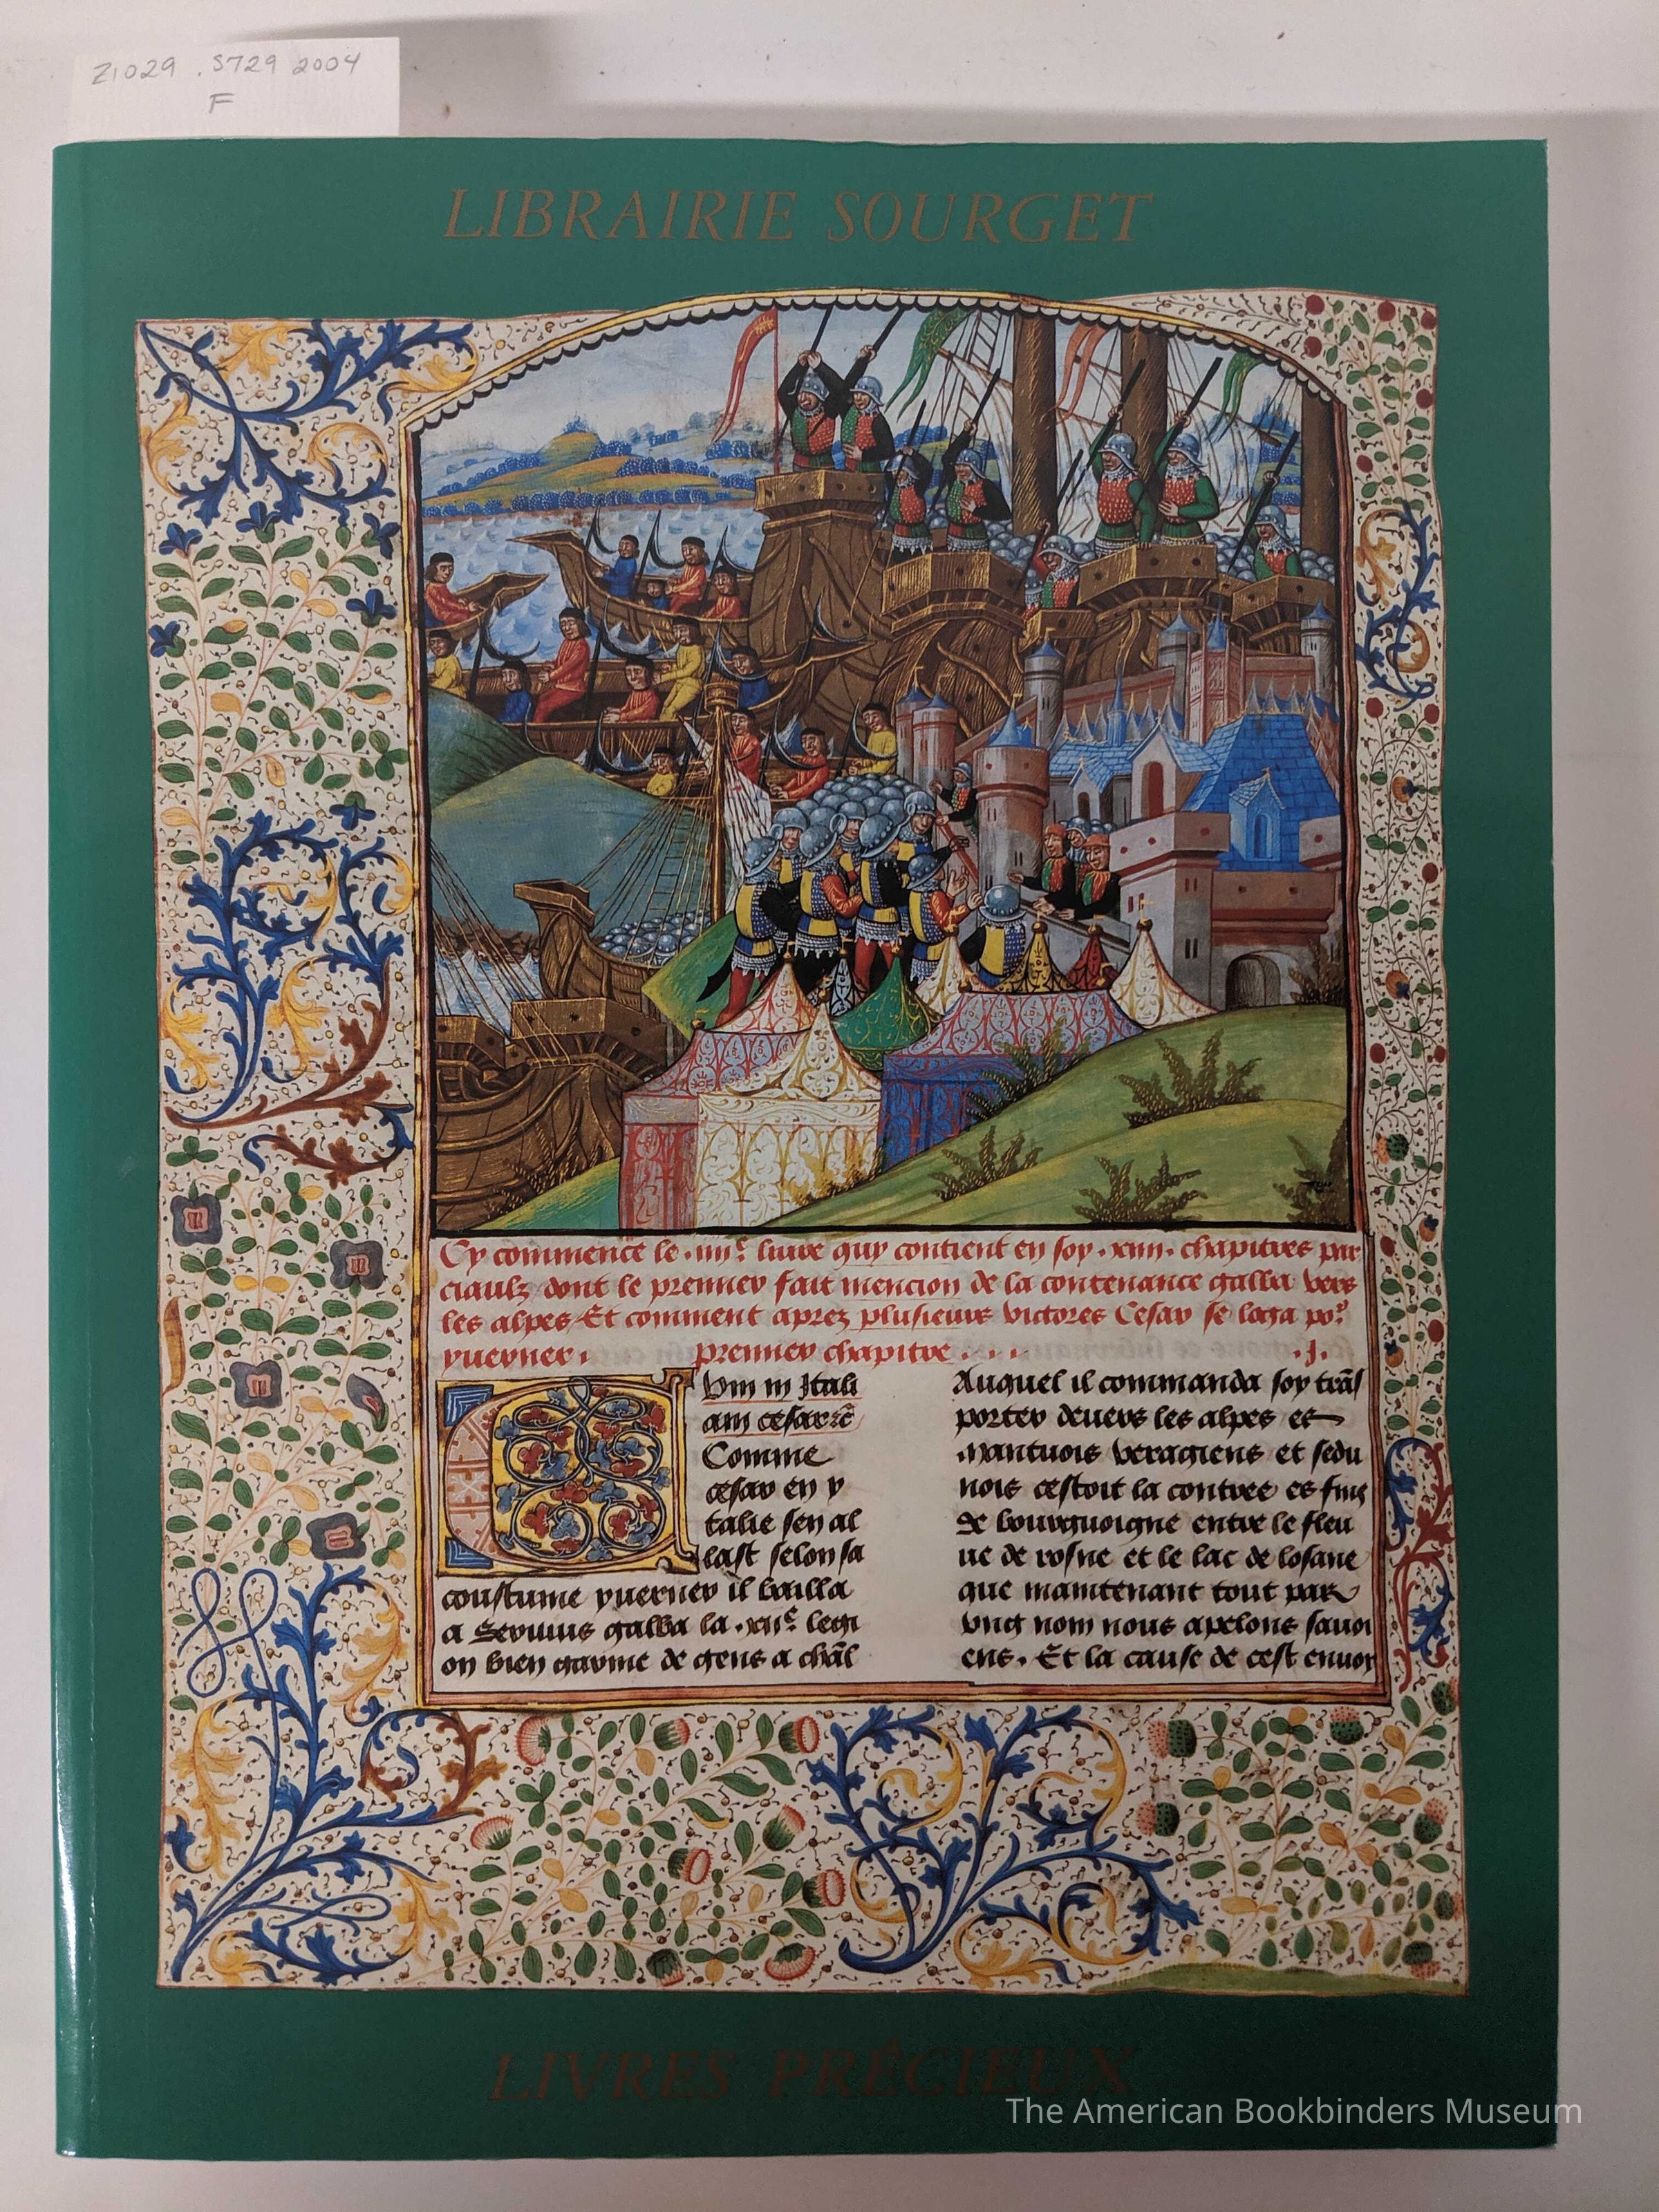 Z1029 .S729 2004
F
LIBRAIRIE SOURGET
Cy commence le .iiii.e livre quy contient en soy .xiiii. chapitres par
ciaulz dont le premier fait mencion de la contenance galba vers
les alpes Et comment aprez plusieurs victores Cesar se loga po.r
yverner . premier chapitre . . . . .j.
Um in Itali
am cesar
Comme
cesar en y
talie sen al
last selon sa
coustume yverner il bailla
a Servius galba la .xii.e legi
on bien garnie de gens a chãl
Auquel il commanda soy trãs
porter devers les alpes es
nantuois veragiens et sedu
nois cestoit la contree es fins
de bourguoigne entre le fleu
ve de rosne et le lac de losane
que maintenant tout par
ung nom nous apelons savoi
ens. Et la cause de cest envoy
LIVRES PRÉCIEUX
The American Bookbinders Museum